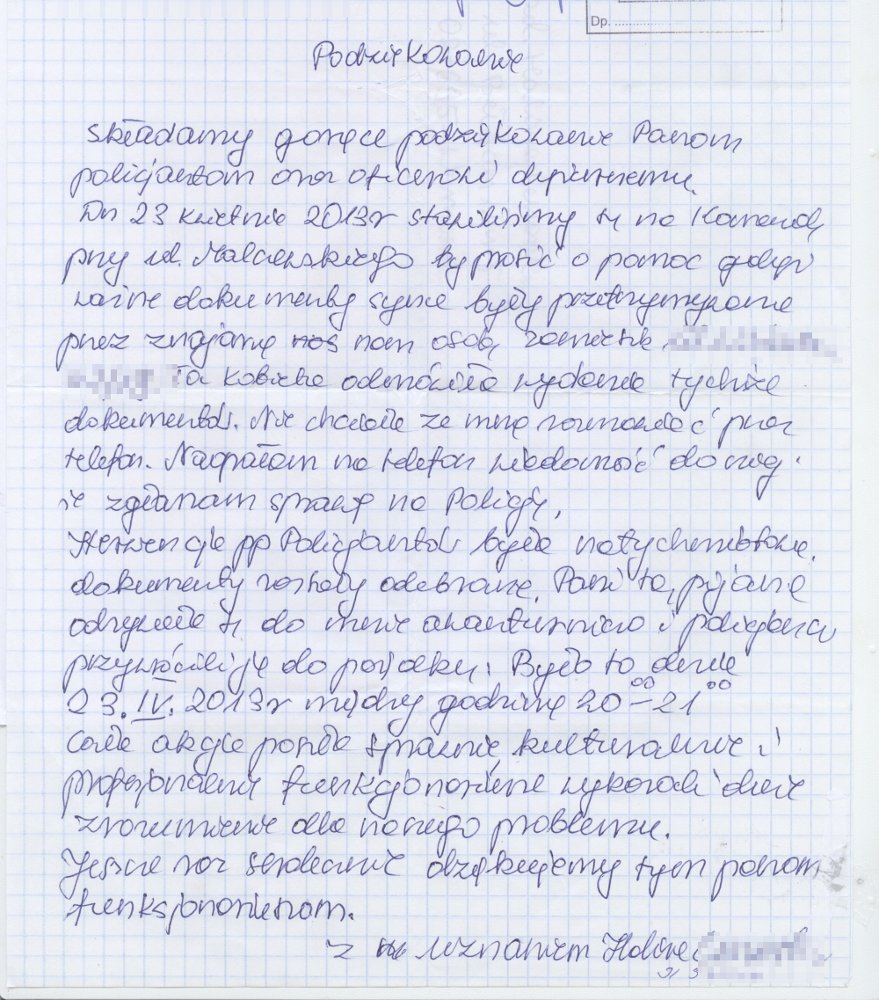 Dp. ..................
Podziękowanie
Składamy gorące podziękowanie Panom
policjantom oraz oficerowi dyżurnemu.
Dn 23 kwietnia 2013r stawiliśmy się na Komendę
przy ul. Malczewskiego by prosić o pomoc gdyż
ważne dokumenty syna były przetrzymywane
przez znajomą nam osobę, zamieszk.
Ta kobieta odmówiła wydania tychże
dokumentów. Nie chciała ze mną rozmawiać przez
telefon. Nagrałam na telefon wiadomość do niej
że zgłaszam sprawę na Policję.
Interwencja pp Policjantów była natychmiastowa.
dokumenty zostały odebrane. Pani ta, pijana
odzywała się do mnie awanturniczo i policjanci
przywrócili ją do porządku. Było to dnia
23.IV.2013r między godziną 20⁰⁰–21⁰⁰
Cała akcja poszła sprawnie, kulturalnie i
profesjonalnie funkcjonariusze wykazali duże
zrozumienie dla naszego problemu.
Jeszcze raz serdecznie dziękujemy tym panom
funkcjonariuszom.
z uznaniem Halina